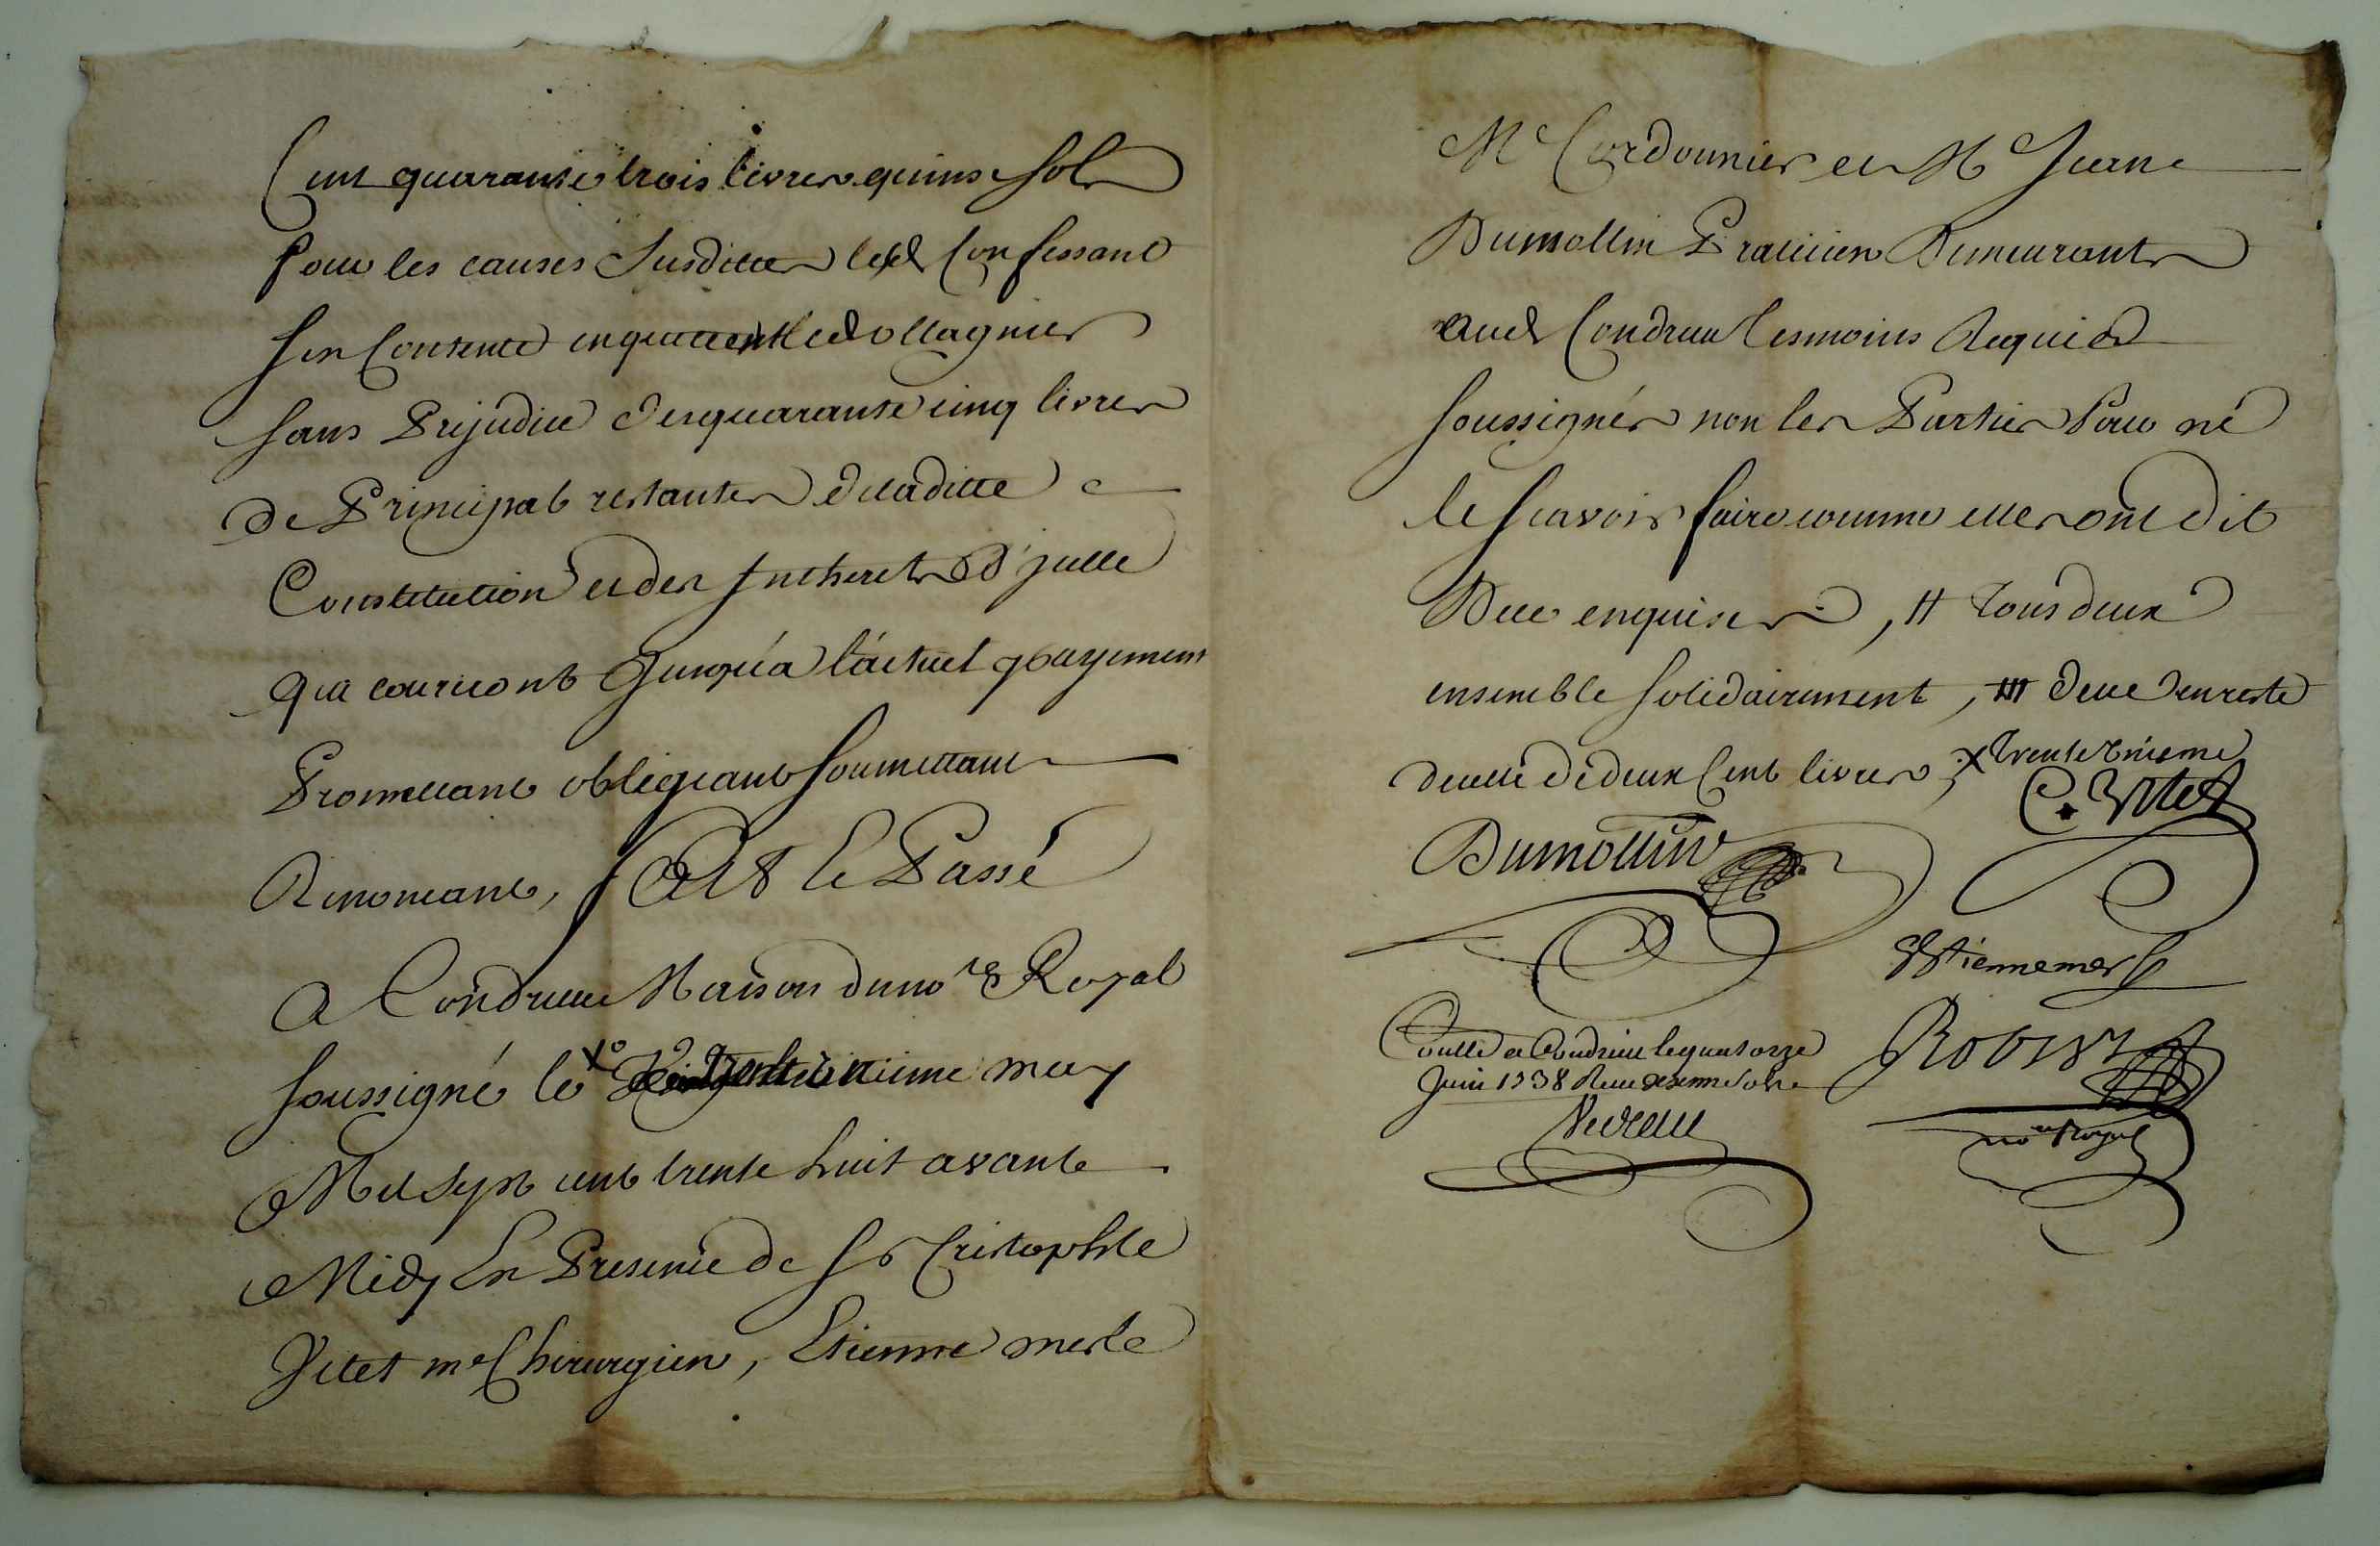 Cent quarante trois livres quinse sols
Pour les causes Susdittes Confessant
sen Contente en quittent led ollagnier
sans Prejudice desquarante cinq livres
de Principal restantes deladitte
Constitution et des Intherets d'jcelle
qui courront Jusqu'a l'actuel payement
Promettant obligeant soumettant
Renonceant, fait & Passé
A Condrieu Maison du no.re Royal
soussigné le x may
Mil Sept cent trente huit avant
Midy En Presence de Sr Cristophle
Vitet me Chirurgien, Etienne merle
Me Cordonnier et Me Jean
Dumollin Praticien Demeurants
aud Condrieu tesmoins Requis
soussignés non les Parties Pour ne
le scavoir faire comme elles ont dit
De ce enquises, # tous deux
ensemble solidairement, deue den reste
de celle de deux Cent livres, x trente unieme
C. Vitet
Dumollin
Estienne merle
Conllé a Condrieu le quatorze
Juin 1738 Receu
Robin
no.re Royal